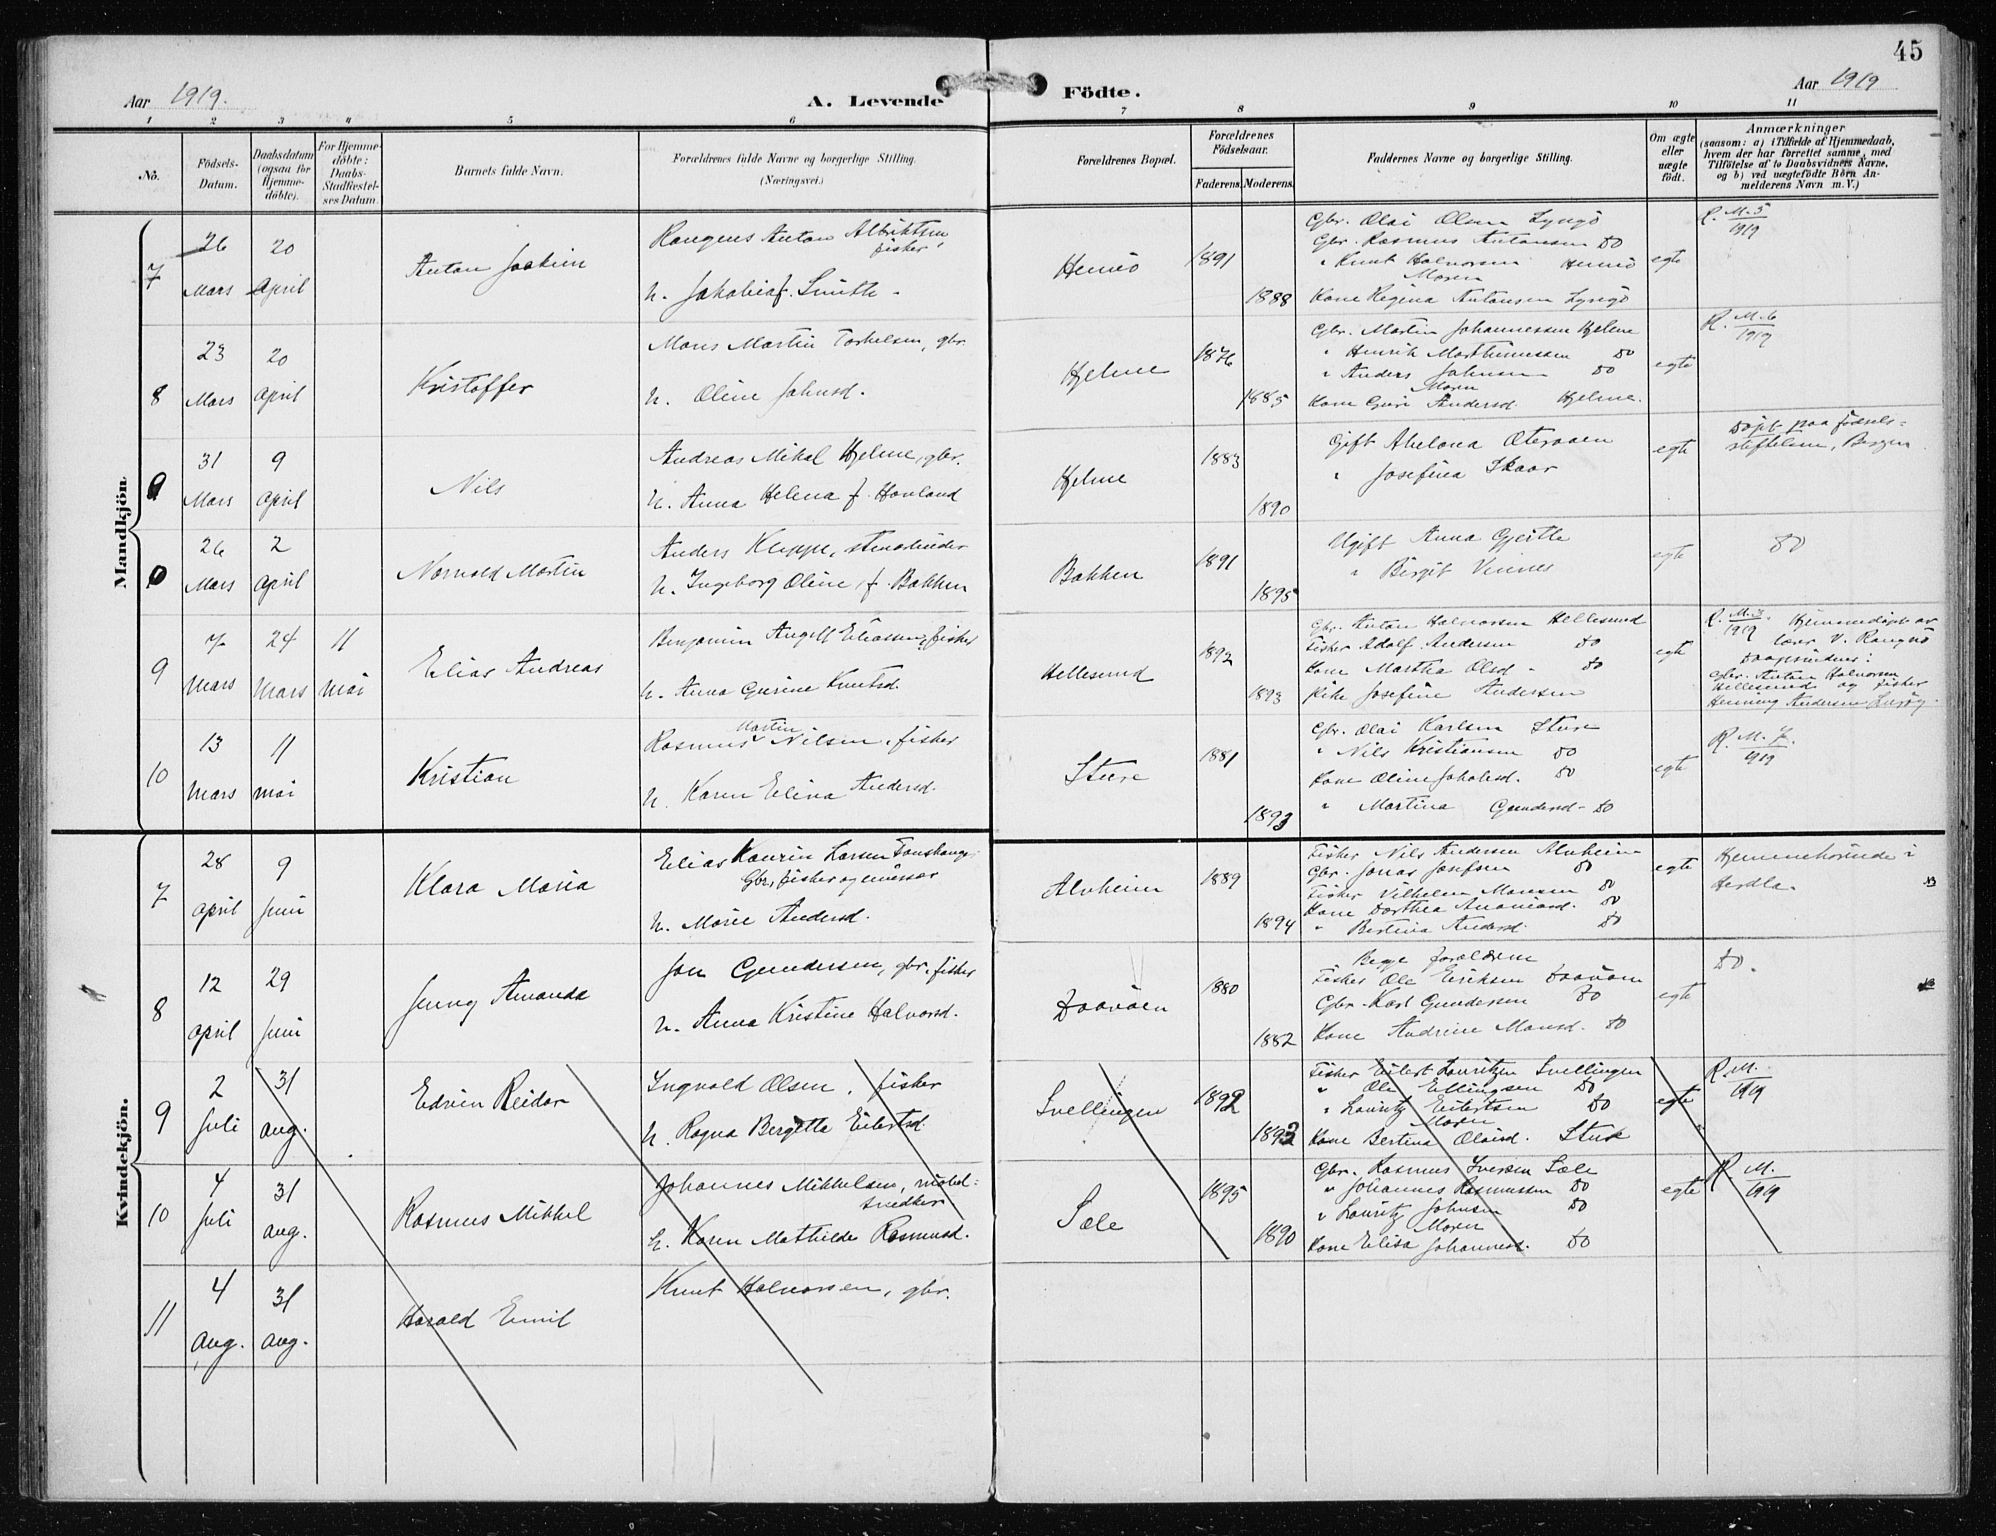 45
Aar 1919.
A. Levende Födte.
Aar 1919
1 2 3 4 5 6 7 8 9 10 11
No.
Födsels-
Datum.
Daabsdatum
(ogsaa for
Hjemme-
döbte).
For Hjemme-
döbte:
Daabs-
Stadfæstel-
ses Datum.
Barnets fulde Navn.
Forældrenes fulde Navne og borgerlige Stilling.
(Næringsvei.)
Forældrenes Bopæl.
Forældrenes
Födselsaar.
Faderens. Moderens.
Faddernes Navne og borgerlige Stilling.
Om ægte
eller
uægte
födt.
Anmærkninger
(saasom: a) i Tilfælde af Hjemmedaab,
hvem der har forrettet samme, med
Tilföielse af to Daabsvidners Navne,
og b) ved uægtefödte Börn An-
melderens Navn m. V.)
Mandkjön.
7
26
Mars
20
April
Anton Joakim
Anton Albriktsen
fisker
H. Jakobia f. Smith
Hernö
1891
1888
Gbr. Olai Olsen Lyngö
Gbr. Rasmus Antonsen Do
" Knut Halvorsen Hernö
Moren
Kone Regina Antonsen Lyngö
egte
R. M. 5
1919
8
23
Mars
20
April
Kristoffer
Mons Martin Torkelsen, gbr.
H. Oline Johnsd.
Hjelme
1876
1885
Gbr. Martin Johannessen Hjelme
" Henrik Marthinussen Do
" Anders Johnsen Do
Moren
Kone Guri Andersd. Hjelme.
egte
R. M. 6
1919
31
Mars
9
April
Nils
Andreas Mikal Hjelme, gbr.
H. Anna Helena f. Hovland
Hjelme
1883
1890
Gift Abelona Oteraaen
" Josefina Skaar
egte
Döpt paa födsels-
stiftelsen, Bergen
26
Mars
2
April
Normold Martin
Anders Kleppe, stenarbeider
H. Ingeborg Oline, f. Bakken
Bakken
1891
1895
Ugift Anna Gjertle
" Birgit Vinnes
egte
Do
9
7
Mars
24
Mars
11
Mai
Elias Andreas
Benjamin Angell Eliassen, fisker
H. Anna Gurine Knutsd.
Hellesund
1892
1893
Gbr. Anton Halvorsen Hellesund
Fisker Adolf Andersen Do
Kone Martha Olsd. Do
Pike Josefine Andersen
egte
R. M. 3.
1919
Hjemmedöpt av
lærer V. Rangnö
Daapsvidner:
Gbr. Anton Halvorsen
Hellesund og fisker
Henning Andersen
10
13
Mars
11
Mai
Kristian
Martin
Rasmus Nilsen, fisker
H. Karen Elina Andersd.
Sture
1881
1893
Gbr. Olai Karlsen Sture
" Nils Kristiansen Do
Kone Oline Jakobsd. Do
" Martina Gundersd. Do
egte
R. M. 7.
1919
Kvindekjön.
7
28
April
9
Juni
Klara Maria
Elias Kaurin Larsen
Gbr, fisker og
H. Marie Andersd.
Alvheim
1889
1894
Fisker Nils Andersen Alvheim
Gbr. Jonas Josefsen Do
Fisker Vilhelm Monsen Do
Kone Dorthea Ananiasd. Do
" Bertina Andersd. Do
egte
Hjemmehörende i
Herdla.
8
12
April
29
Juni
Jenny Amanda
Jon Gundersen, gbr, fisker
H. Anna Kristine Halvorsd.
Daavöen
1880
1882
Begge forældrene
Fisker Ole Eriksen Daavöen
Gbr. Karl Gundersen Do
Kone Andrine Monsd. Do
egte
Do.
9
2
Juli
31
Aug.
Edvin Reidar
Ingvald Olsen, fisker
H. Ragna Bergitta Eilertsd.
Svellingen
1892
1893
Fisker Eilert Lauritzen Svellingen
" Ole Ellingsen Do
" Lauritz Eilertsen Do
Moren
Kone Bertina Olaisd. Sture
egte
R. M.
1919
10
4
Juli
31
Aug.
Rasmus Mikkel
Johannes Mikkelsen, möbel-
snedker
H. Karen Mathilde Rasmusd.
Sæle
1895
1890
Gbr. Rasmus Iversen Sæle
" Johannes Rasmussen Do
" Lauritz Johnsen Do
Moren
Kone Elisa Johannesd. Do
egte
R. M.
1919
11
4
Aug.
31
Aug.
Harald Emil
Knut Halvorsen, gbr.